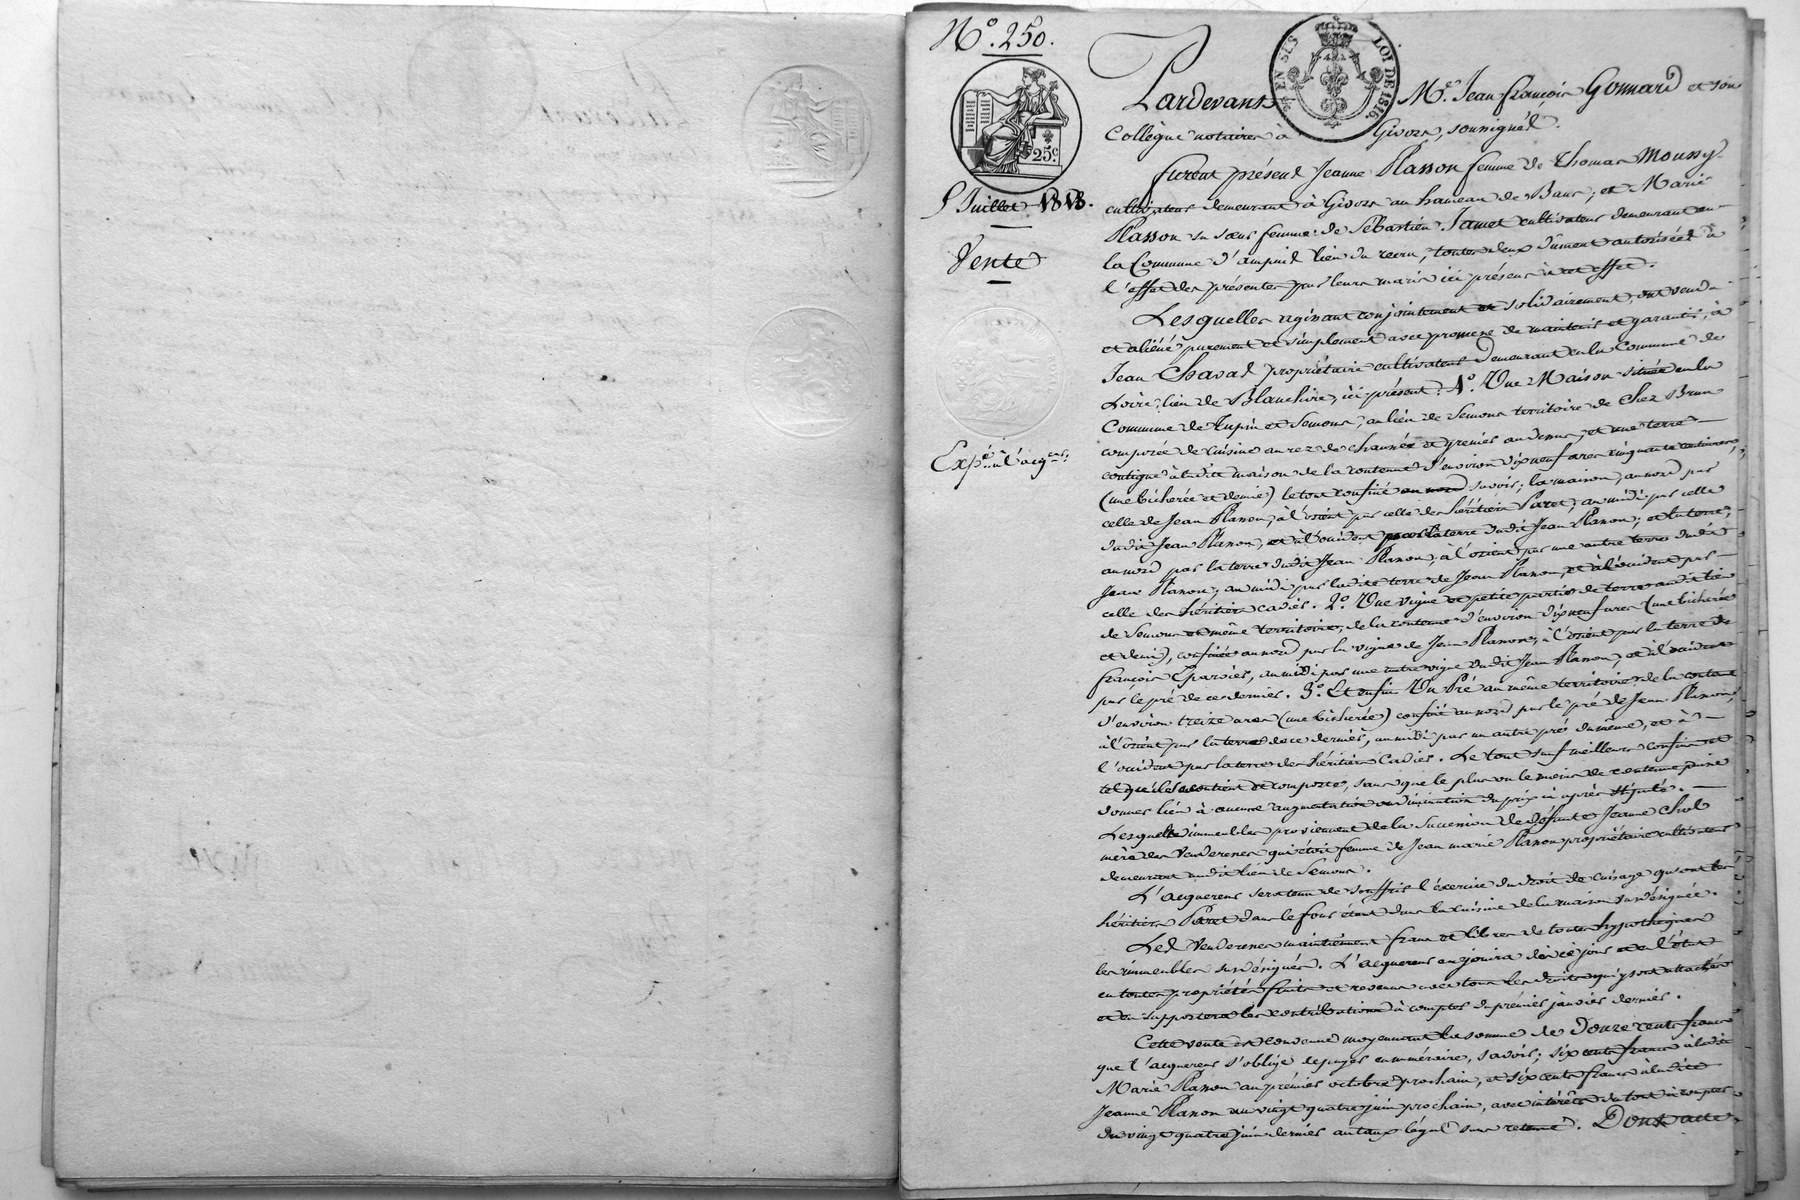 N.º 250.
EN SUS LOI DE 1816.
25.c
5 Juillet 1818.
Vente
Exp.on à l'acq.eur
Pardevant M.e Jean François Gonnard et son
Collègue notaires à Givors, soussignés.
furent présents Jeanne Plasson femme de Thomas Moussy
cultivateur demeurant à Givors au hameau de Bans; et Marie
Plasson sa sœur femme de Sébastien Jamet cultivateur demeurant en
la Commune d'ampuis lieu du recru, toutes deux dûment autorisées à
l'effet des présentes par leurs maris ici présens à cet effet.
Lesquelles agissant conjointement et solidairement, ont vendu
et aliéné purement et simplement avec promesse de maintenir et garantir, à
Jean Chaval propriétaire cultivateur demeurant en la Commune de
Loire, lieu de Blancherie, ici présent: 1.º Une Maison située en la
Commune de Tupin et Semons, au lieu de Semons territoire de Chez Brun
composée de cuisine au rez de chaussée et grenier au dessus, et une terre
contigue à ladite maison de la contenue d'environ dix neuf ares cinquante centiares,
(une bicherée et demie) le tout confiné au nord savoir; la maison, au nord par
celle de Jean Plasson, à l'orient par celle des héritiers Paret, au midi par celle
dudit Jean Plasson, et à l'occident par la terre dudit Jean Plasson; et la terre,
au nord par la terre dudit Jean Plasson, à l'orient par une autre terre dudit
Jean Plasson, au midi par ladite terre de Jean Plasson, et à l'occident par
celle des héritiers Cadier. 2.º Une vigne et petite partie de terre audit lieu
de Semons et même territoire, de la contenue d'environ dix neuf ares (une bicherée
et demie), confinée au nord par la vigne de Jean Plasson, à l'orient par la terre de
françois, au midi par une autre vigne dudit Jean Plasson, et à l'occident
par le pré de ce dernier. 3.º Et enfin Un Pré au même territoire de la contenue
d'environ treize ares (une bicherée) confiné au nord par le pré de Jean Plasson,
à l'orient par la terre de ce dernier, au midi par un autre pré du même, et à
l'occident par la terre des héritiers Cadier. Le tout sauf meilleurs confins et
tel qu'il se contient et comporte, sans que le plus ou le moins de contenue puisse
donner lieu à aucune augmentation ou diminution du prix ci après stipulé.
Lesquels immeubles proviennent de la succession de défunte Jeanne
mère des Venderesses qui étoit femme de Jean marie Plasson propriétaire cultivateur
demeurant audit lieu de Semons.
L'acquereur sera tenu de souffrir l'exercice du droit de cuisage qu'ont les
héritiers Paret dans le four étant dans la cuisine de la maison susdésignée.
Les Venderesses maintiennent francs et libres de toutes hypothèques
les immeubles susdésignés. L'acquereur en jouira dès ce jour et en l'état
en toute propriété, fruits et revenus avec tous les droits qui y sont attachés
et en supportera les contributions à compter du premier janvier dernier.
Cette vente est convenue moyennant la somme de Douze cents francs
que l'acquereur s'oblige de payer en numéraire, savoir; six cents francs à ladite
Marie Plasson au premier octobre prochain, et six cents francs à ladite
Jeanne Plasson au vingt quatre juin prochain, avec intérêts du tout à compter
du vingt quatre juin dernier au taux légal sans retenue. Dont acte